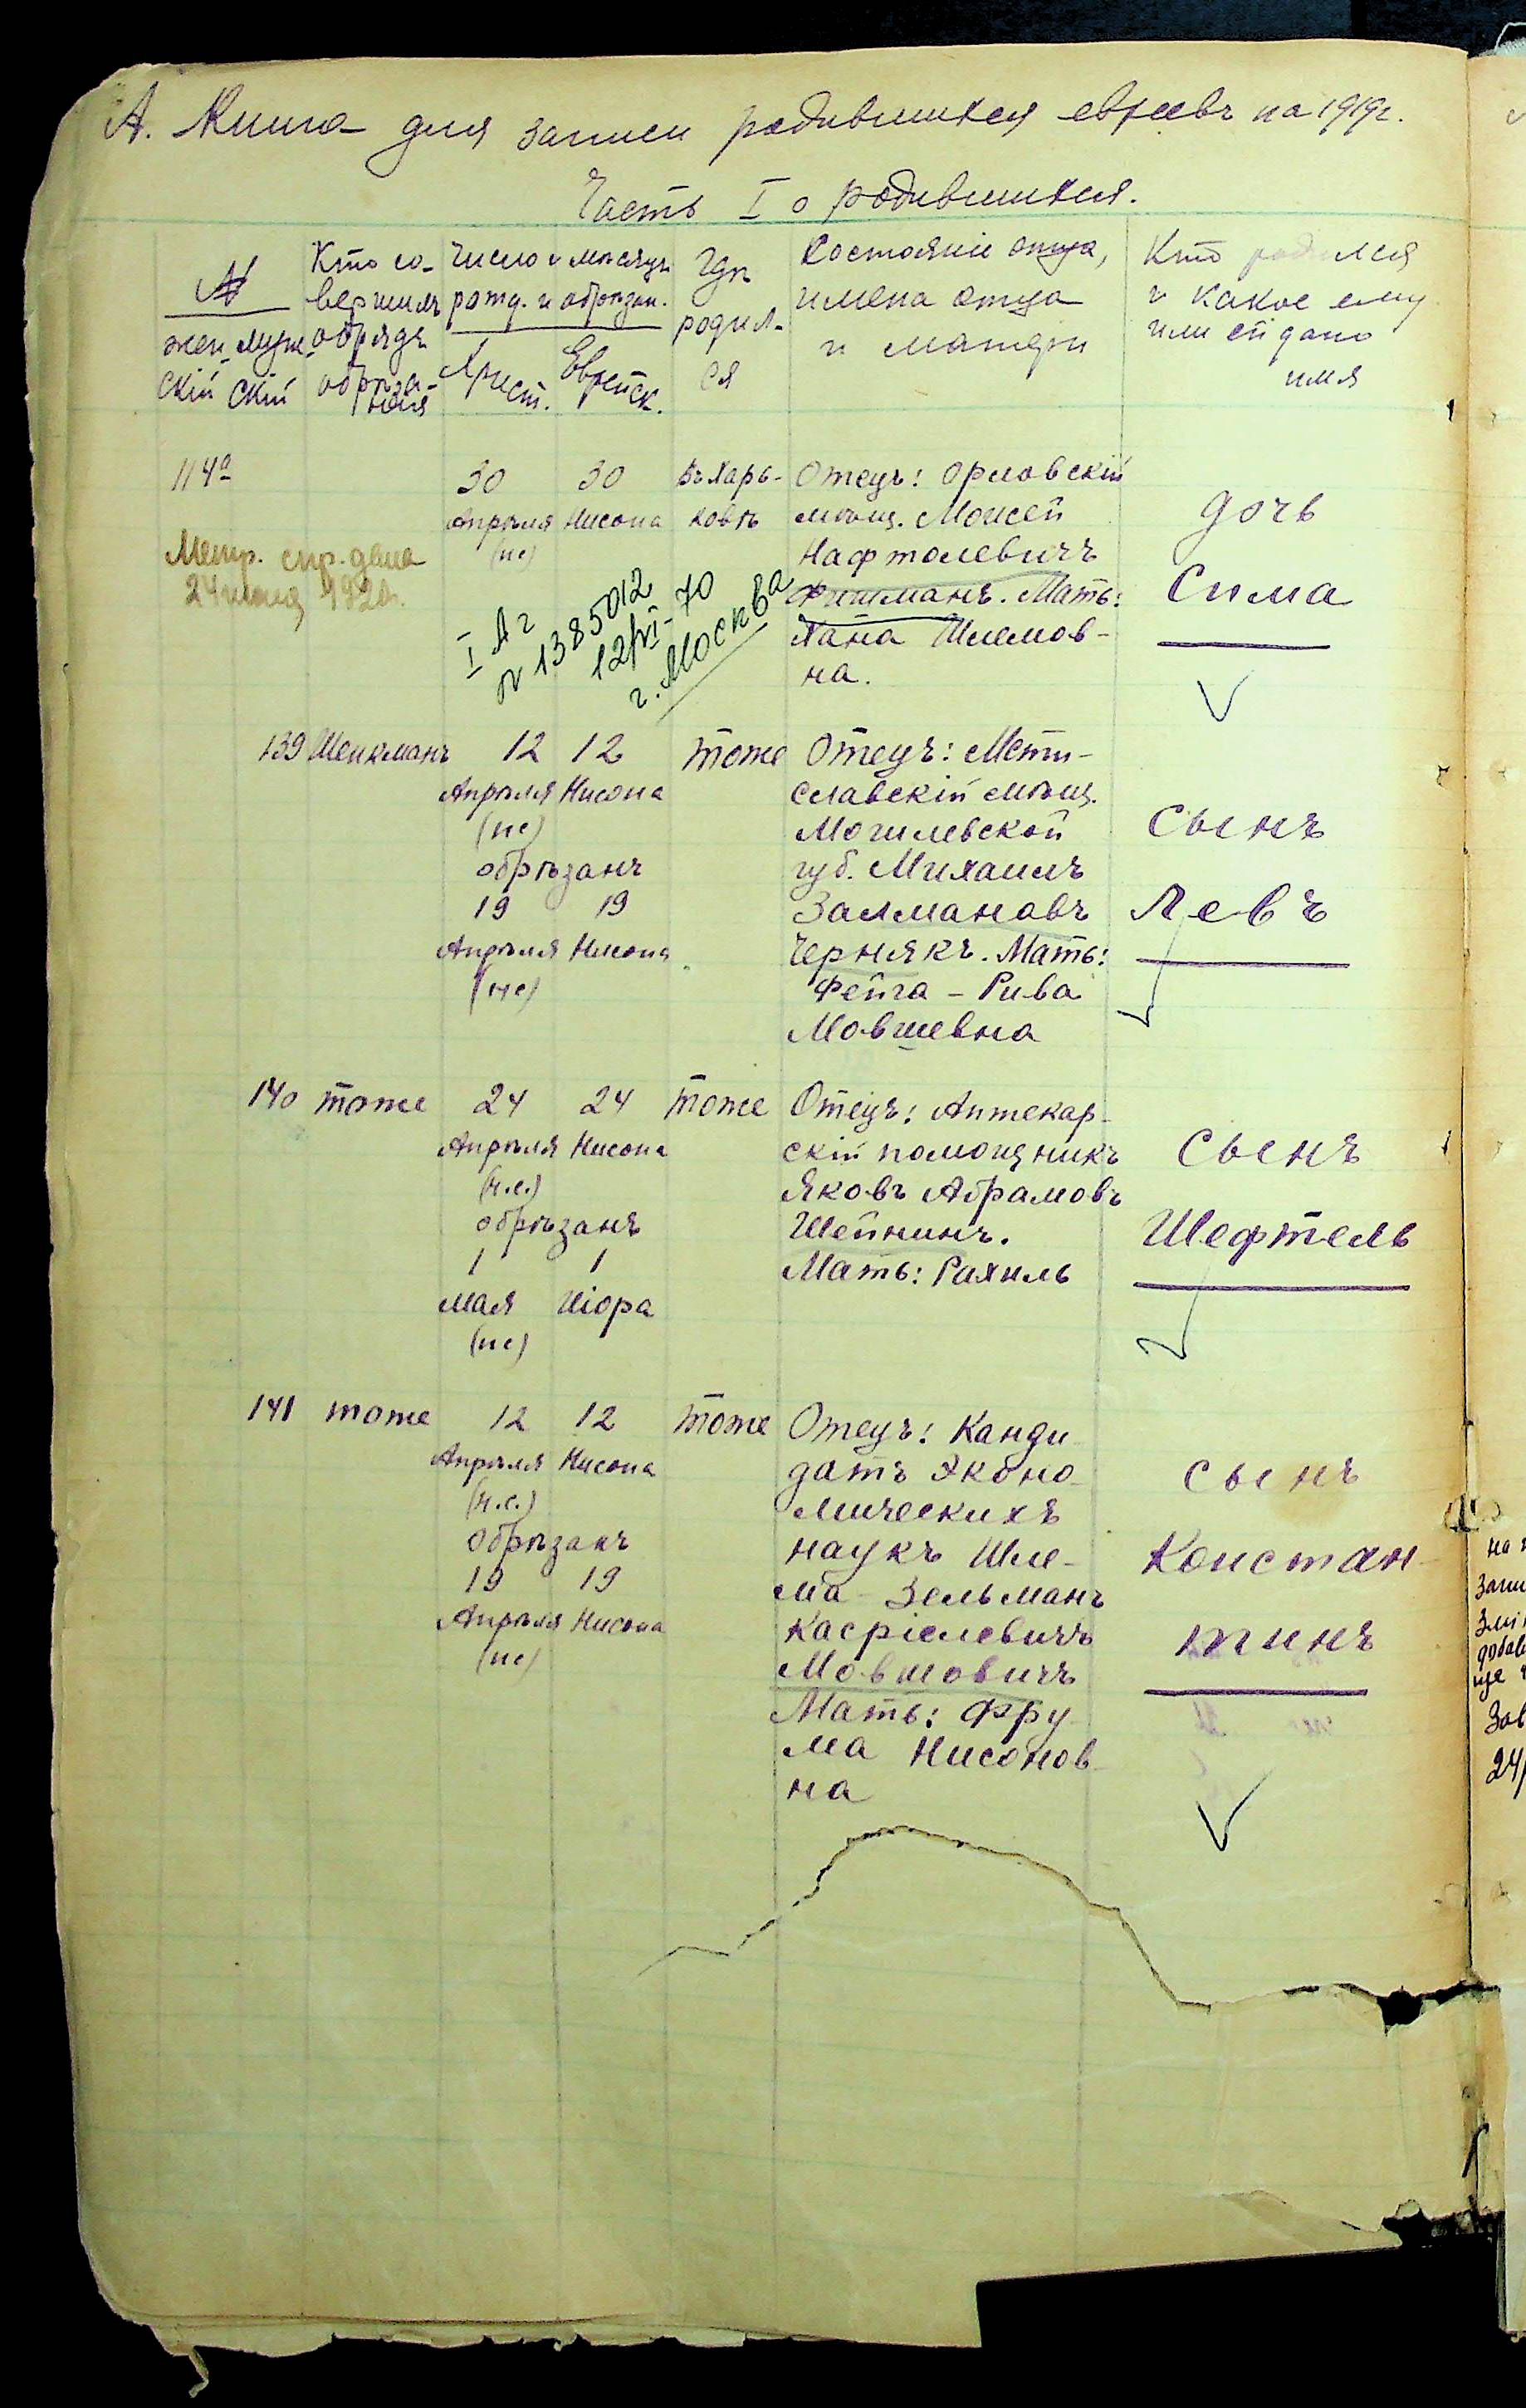 А. Книга для записи родившихся евреевъ на 1919г.
Часть I о родившихся.
№
жен- муж-
скій скій
Кто со-
вершилъ
обрядъ
обрѣза-
нія
Число и мѣсяцъ
рожд. и обрѣзан.
Христ. Еврейск.
Гдѣ
родил-
ся
Состояніе отца,
имена отца
и матери
Кто родился
и какое ему
или ей дано
имя
114а
Метр. спр. дана
1920г.
30 30
Апрѣля Нисона
(нс)
I Аг
№ 1385012
12/VI-70
г. Москва
Въ Харь-
ковѣ
Отецъ: Орловскій
мѣщ. Моисей
Нафтолевичъ
Фишманъ. Мать:
Хана Шлемов-
на.
дочь
Сима
139 Шенкманъ
12 12
Апрѣля Нисона
(нс)
обрѣзанъ
19 19
Апрѣля Нисона
(нс)
тоже
Отецъ: Мсти-
славскій мѣщ.
Могилевской
губ. Михаилъ
Залмановъ
Чернякъ. Мать:
Фейга - Рива
Мовшевна
сынъ
Левъ
140 тоже
24 24
Апрѣля Нисона
(н.с.)
обрѣзанъ
1 1
Мая Иіора
(нс)
тоже
Отецъ: Аптекар-
скій помощникъ
Яковъ Абрамовъ
Шейнинъ.
Мать: Рахиль
сынъ
Шефтель
141 тоже
12 12
Апрѣля Нисона
(н.с.)
Обрѣзанъ
19 19
Апрѣля Нисона
(нс)
тоже
Отецъ: Канди-
датъ Эконо-
мическихъ
наукъ Шле-
ма - Зельманъ
Касріелевичъ
Мовшовичъ
Мать: Фру-
ма Нисонов-
на
сынъ
Констан-
тинъ